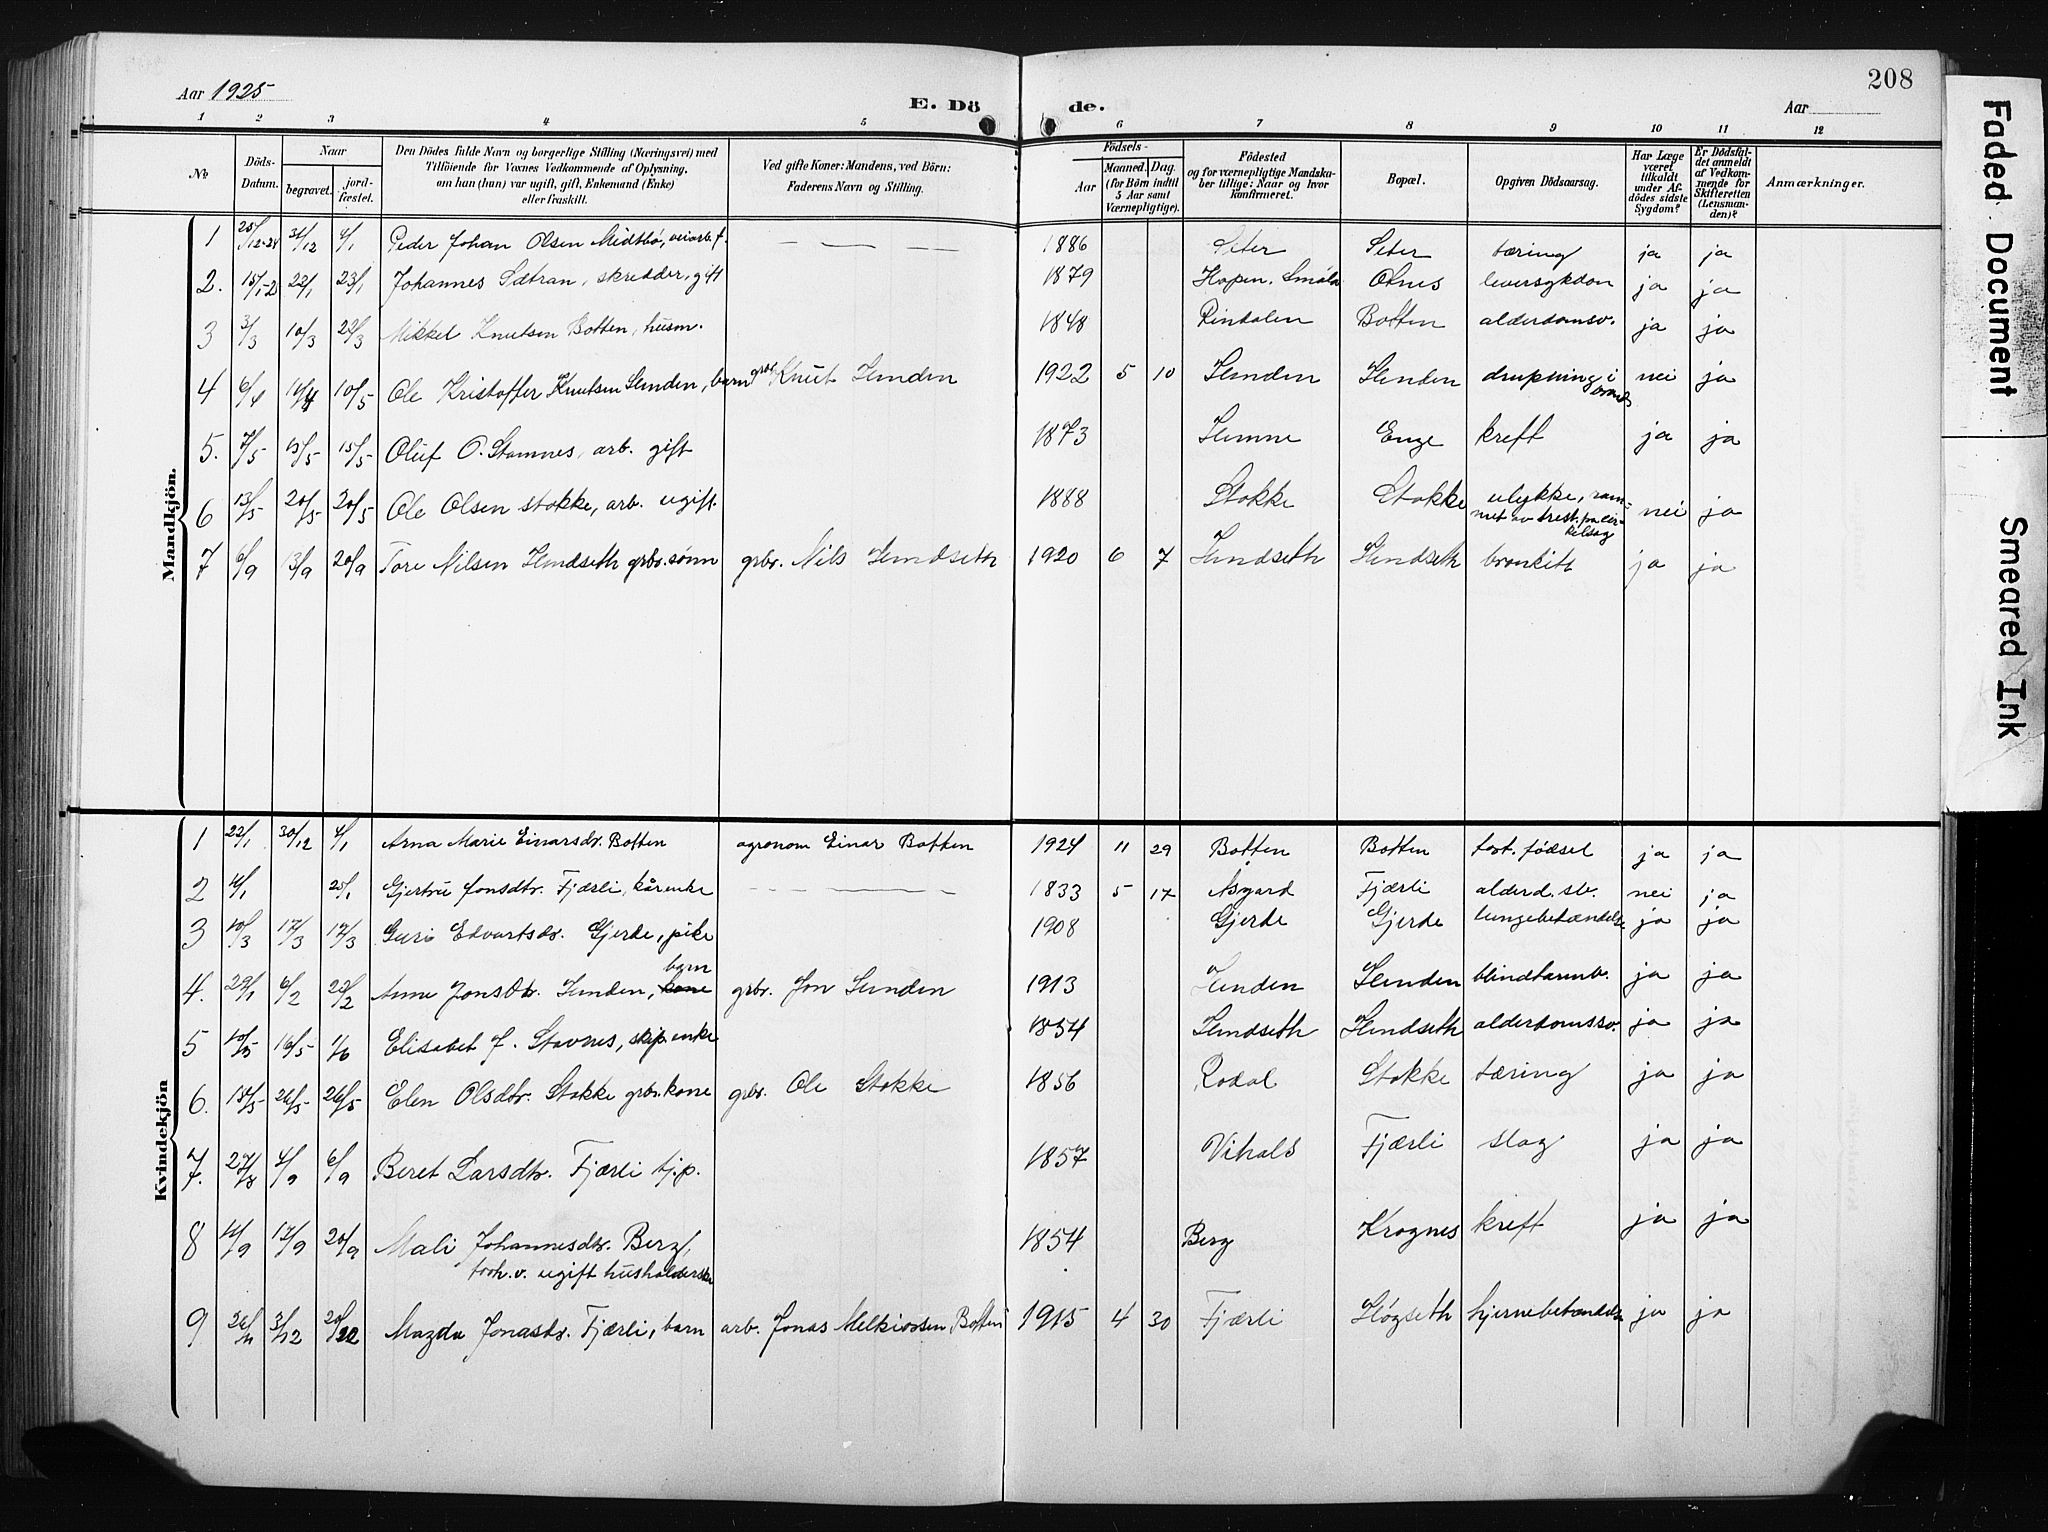 Aar 1925
E. Dö de.
Aar
208
1 2 3 4 5 6 7 8 9 10 11 12
№
Döds-Datum.
Naar
begravet.
jord-fæstet.
Den Dödes fulde Navn og borgerlige Stilling (Næringsvei) med
Tilföiende for Voxnes Vedkommende af Oplysning,
om han (hun) var ugift, gift, Enkemand (Enke)
eller fraskilt.
Ved gifte Koner: Mandens, ved Börn:
Faderens Navn og Stilling.
Födsels-
Aar
Maaned. Dag.
(for Börn indtil
5 Aar samt
Værnepligtige).
Födested
og for værnepligtige Mandska-
ber tillige: Naar og hvor
konfirmeret.
Bopæl.
Opgiven Dödsaarsag.
Har Læge
været
tilkaldt
under Af-
dödes sidste
Sygdom?
Er Dödsfal-
det anmeldt
af Vedkom-
mende for
Skifteretten
(Lensman-
den)?
Anmærkninger.
Mandkjön.
1 25/12-24 31/12 4/1 Peder Johan Olsen Midtbö, veiarb. f. — — — 1886 Seter Seter tæring ja ja
2. 15/1-2 22/1 23/1 Johannes Sætran, skredder, gift 1879 Hopen, Smöla Otnes leversykdom ja ja
3 3/3 10/3 22/3 Mikkel Knutsen Botten, husm. 1848 Rindalen Botten alderdomsv. ja ja
4 6/4 14/4 10/5 Ole Kristoffer Knutsen Henden, barn grbr. Knut Henden 1922 5 10 Henden Henden drukning i brønd nei ja
5. 7/5 13/5 15/5 Oluf O. Stamnes, arb. gift 1873 Hemne Enge kreft ja ja
6 13/5 20/5 20/5 Ole Olsen Stokke, arb. ugift. 1888 Stokke Stokke ulykke, ram-
met av trest. pa cir-
kelsag nei ja
7 6/9 13/9 20/9 Tore Nilsen Hendseth grbr. sønn grbr. Nils Hendseth 1920 6 7 Hendseth Hendseth bronkitt ja ja
Kvindekjön
1 22/1 30/12 4/1 Arna Marie Einarsdr. Botten agronom Einar Botten 1924 11 29 Botten Botten fort. fødsel ja ja
2 4/1 25/1 Gjertru Jonsdtr. Fjærli, kårenke — — — 1833 5 17 Asgard Fjærli alderd. sv. nei ja
3 10/3 17/3 17/3 Guri Edvartsdr. Gjerde, pike 1908 Gjerde Gjerde lungebetændelse ja ja
barn
4. 29/1 6/2 22/2 Anne Jonsdtr. Henden, kone grbr. Jon Henden 1913 Henden Henden blindtarmb. ja ja
5 10/5 16/5 1/6 Elisabet J. Stavnes, skip. enke 1854 Hendseth Hendseth alderdomssv. ja ja
6. 15/5 26/5 26/5 Elen Olsdtr. Stokke grbr. kone grbr. Ole Stokke 1856 Rodal Stokke tæring ja ja
7. 27/8 4/9 6/9 Beret Larsdtr. Fjærli tj.p. 1857 Vihals Fjærli slag ja ja
8 11/9 17/9 20/9 Mali Johannesdtr. Berg,
forh. v. ugift husholderske 1854 Berg Krognes kreft ja ja
9 26/11 3/12 20/12 Magda Jonasdr. Fjærli, barn arb. Jonas Melkiorsen Botten 1915 4 30 Fjærli Høgseth hjernebetændelse ja ja
Faded Document
Smeared Ink